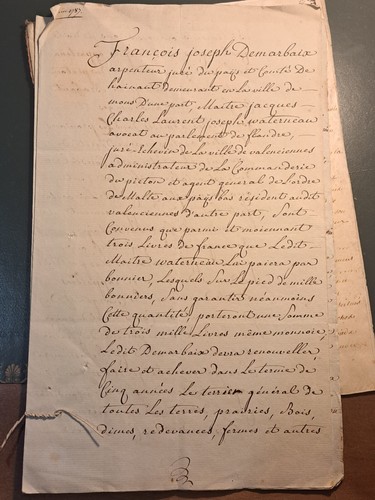 1787
François Joseph Demarbaix
arpenteur juré du pays et Comté De
hainaut demeurant en la ville de
mons D'une part, Maitre jacques
Charles Laurent joseph waterneau
avocat au parlement de flandre,
juré-Echevin de La ville de valenciennes
administrateur de La Commanderie
du pieton et agent general de l'ordre
de Malte aux païs bas résident audit
valenciennes d'autre part, Sont
Convenus que parmi et moiennant
trois Livres de france que Ledit
Maitre waterneau Lui paiera par
bonnier, Lesquels Sur Le pied de mille
bonniers, Sans garantir néanmoins
Cette quantité, porteront une Somme
de trois mille Livres même monnoie,
Ledit Demarbaix devra renouveller,
faire et achever dans Le terme de
Cinq années Le terrier général de
toutes Les terres, prairies, Bois,
dimes, redevances, fermes et autres